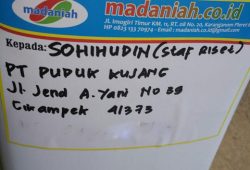 madaniah
madaniah.co.id
Jl. Imogiri Timur KM. 11, RT. 08 No. 2, Karanganom
HP 0823 133 70974 - Email: madaniah.co.id@gmail.com
Kepada: SOHIHUDIN (Staf RISET)
PT PUPUK KUJANG
Jl. Jend A. Yani No 39
Cikampek 41373